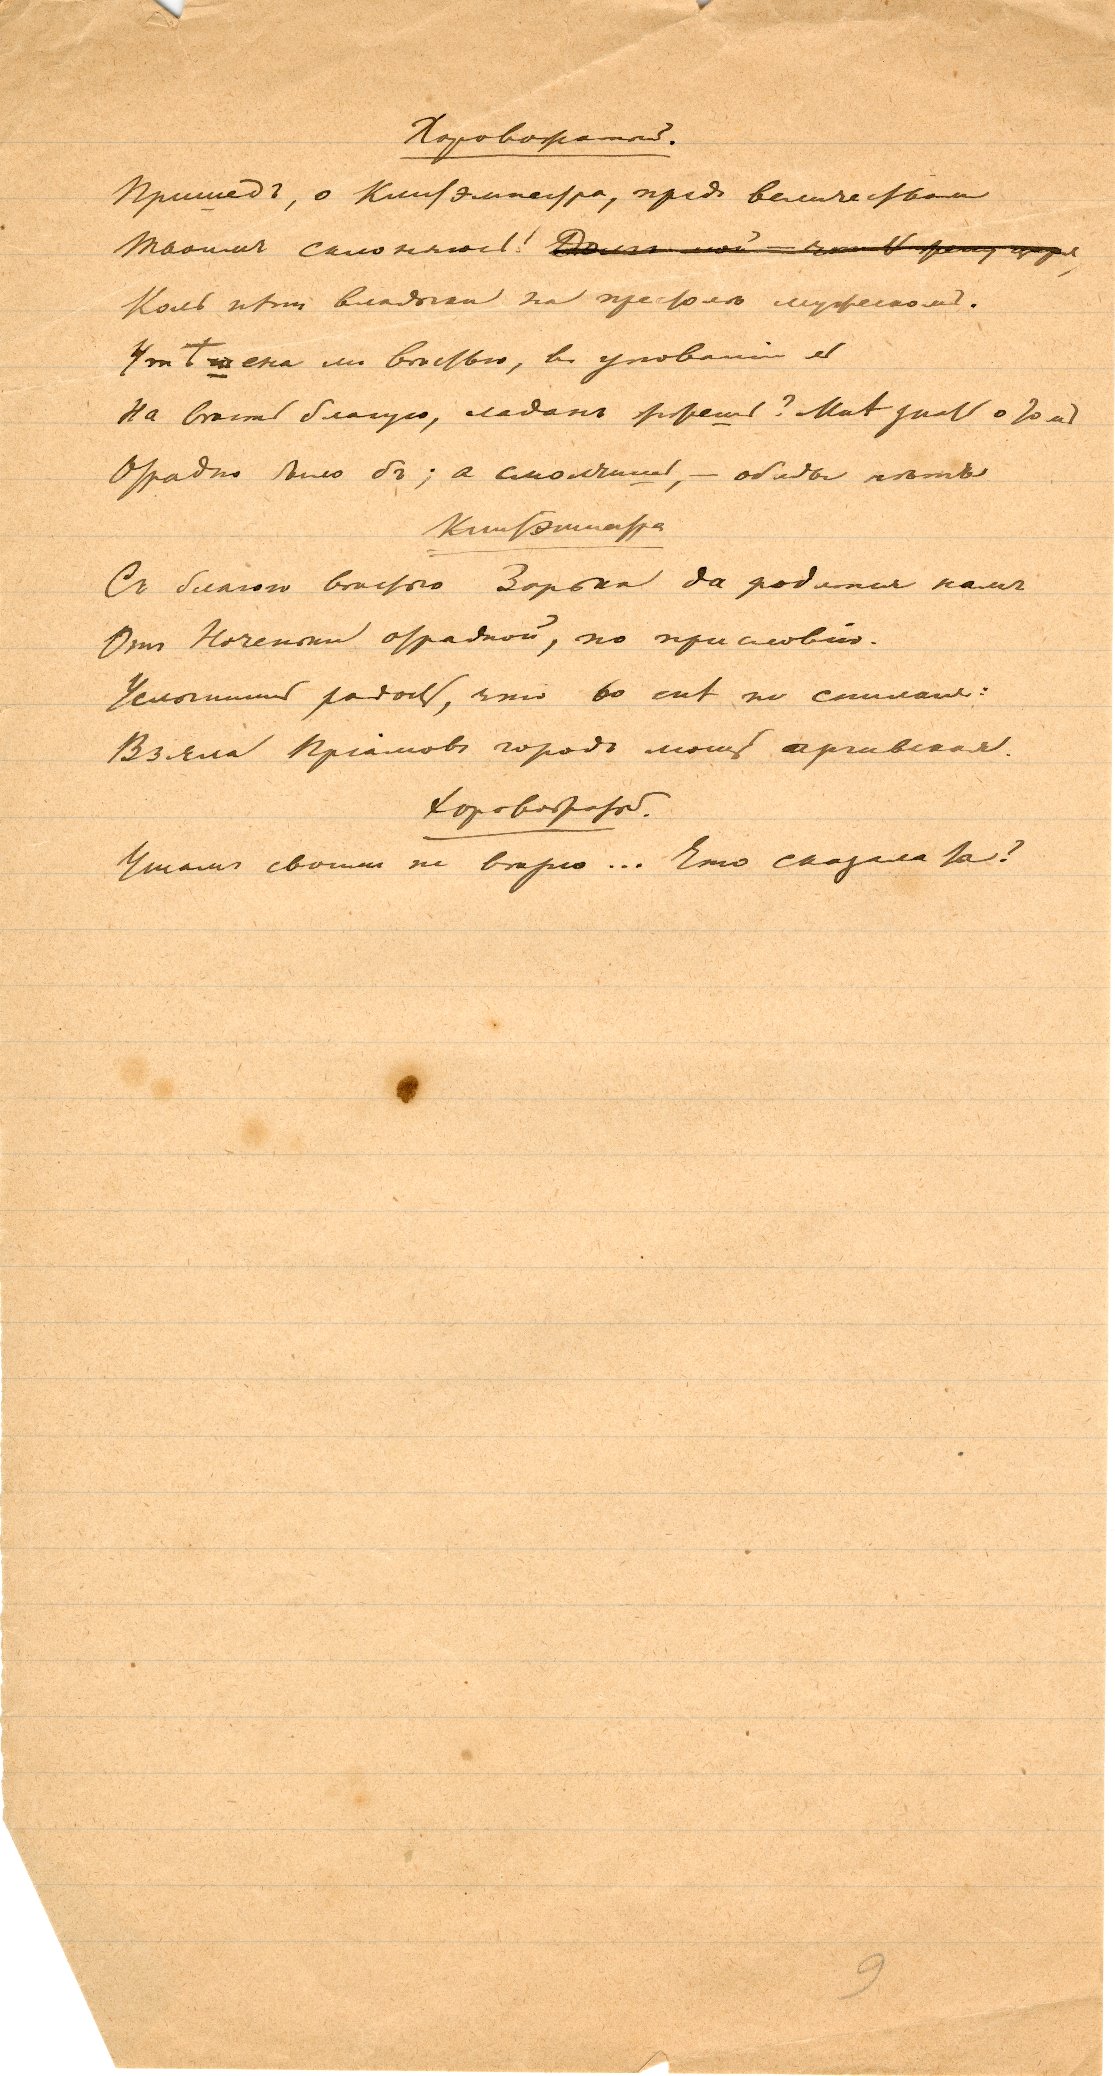 Хоровожатый.
Пришедъ, о Клитэмнестра, предъ величествомъ
Твоимъ склоняюсь! Долгъ мой – чтить жену царя,
Коль нѣтъ владыки на престолѣ мужескомъ.
Утѣшена ль вѣстью, въ упованіи ль
На вѣсть благую, ладанъ жжешь? Мнѣ знать о томъ
Отрадно было бъ; а смолчишь, – обиды нѣтъ.
Клитэмнестра
Съ благою вѣстью Зорька да родится намъ
Отъ Ноченьки отрадной, по присловію.
Услышишь радость, что во снѣ не снилася:
Взяла Пріамовъ городъ мощь аргивская.
Хоровожатый.
Ушамъ своимъ не вѣрю... Что сказала ты?
9